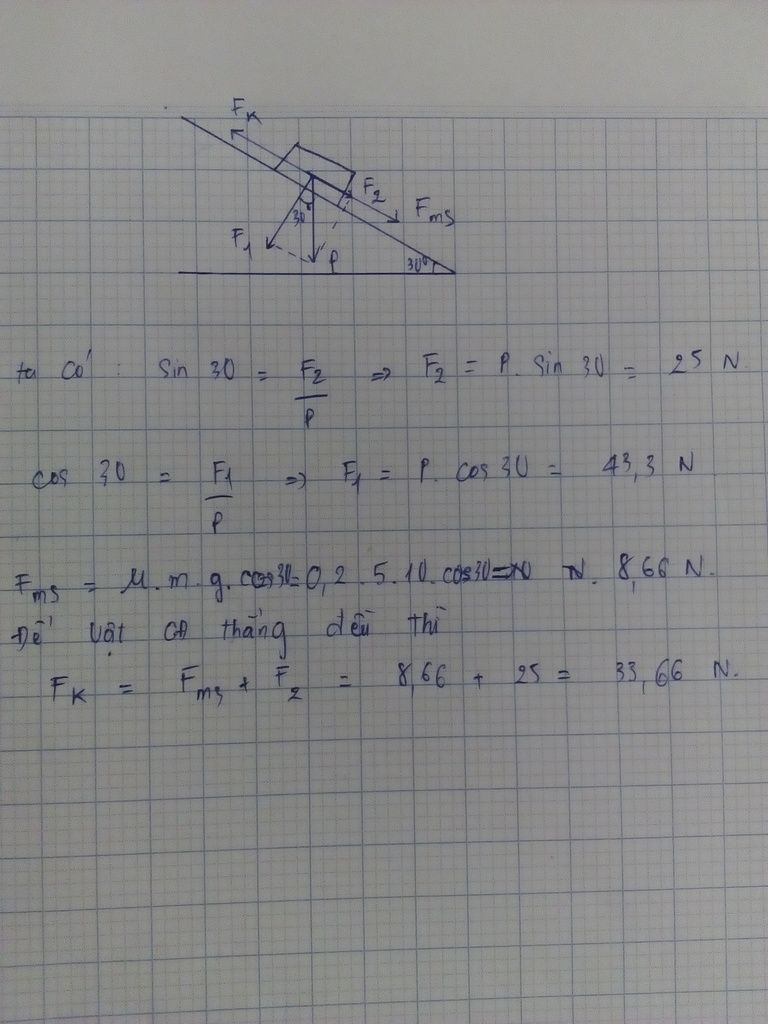 Fk
F2
Fms
30°
F1
P
30°
ta có : Sin 30 = F2/P => F2 = P. Sin 30 = 25 N
cos 30 = F1/P => F1 = P. cos 30 = 43,3 N
Fms = μ.m.g.cos30=0,2.5.10.cos30= 8,66 N.
Để vật CĐ thẳng đều thì
FK = Fms + F2 = 8,66 + 25 = 33,66 N.